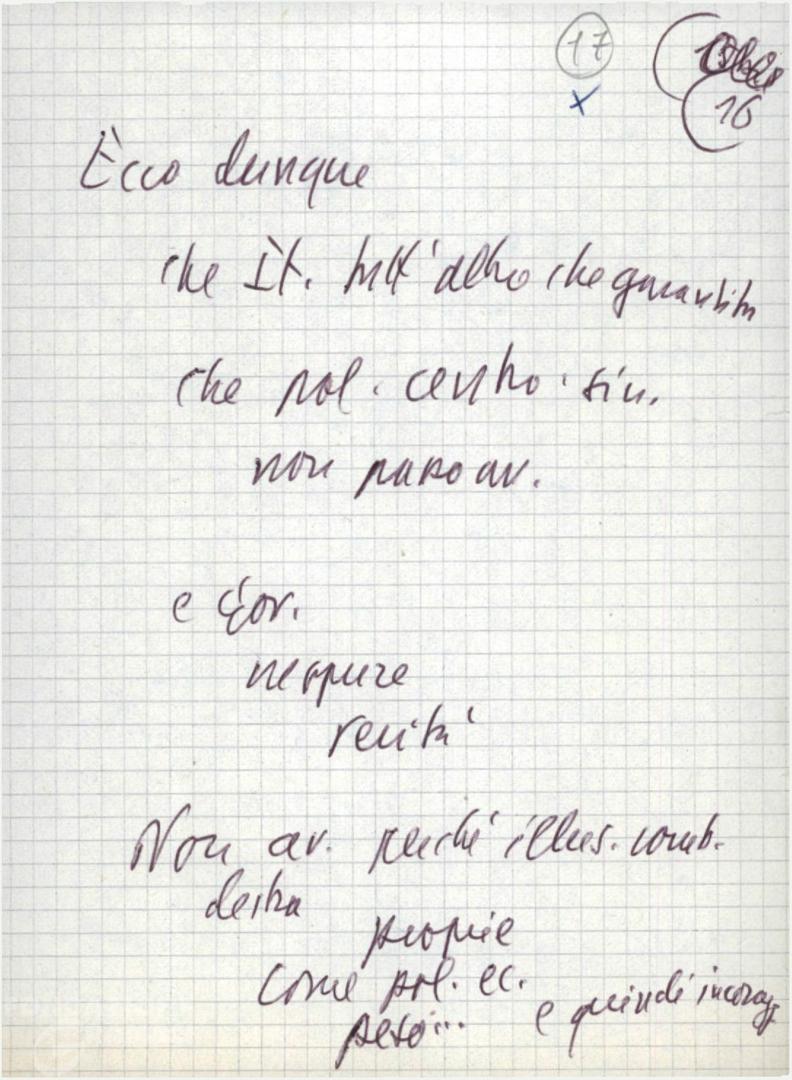 17
16
Ecco dunque
che It. tutt'altro che garantita
che pol. centro. sin.
non passo av.
e Gov.
neppure
verità
Non av. perché illus. comb.
destra
proprie
come pol. ec.
però... e quindi incoragg